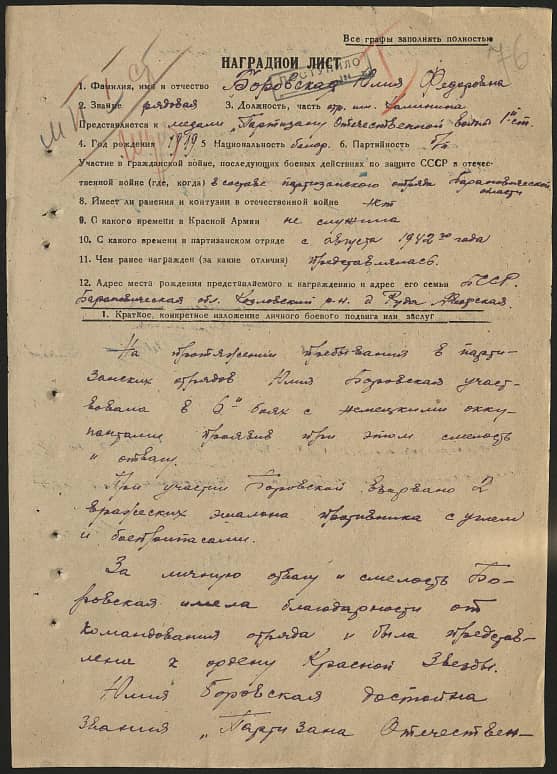 Все графы заполнять полностью
76
НАГРАДНОЙ ЛИСТ
ПОСТУПИЛО
1. Фамилия, имя и отчество Боровская Юлия Федоровна
2. Звание рядовая 3. Должность, часть отр. им. Калинина
Представляется к медали „Партизану Отечественной войны" 1й ст.
4. Год рождения 1919 5 Национальность белор. 6. Партийность б/п
Участие в гражданской войне, последующих боевых действиях по защите СССР в отечес-
ственной войне (где, когда) в составе партизанского отряда Барановической
области
8. Имеет ли ранения и контузии в отечественной войне нет
9. С какого времени в Красной Армии не служила
10. С какого времени в партизанском отряде с августа 1942го года
11. Чем ранее награжден (за какие отличия) представлялась.
12. Адрес места рождения представляемого к награждению и адрес его семьи БССР.
Барановическая обл. Козловский р-н. д Руда Яворская
1. Краткое, конкретное изложение личного боевого подвига или заслуг
На протяжении пребывания в парти-
занских отрядов Юлия Боровская участ-
вовала в 6и боях с немецкими окку-
пантами, проявив при этом смелость
и отвагу.
При участии Боровской взорвано 2
вражеских эшалона противника с углем
и боеприпасами.
За личную отвагу и смелость Бо-
ровская имела благодарности от
командования отряда и была представ-
лена к ордену Красной Звезды.
Юлия Боровская достойна
звания „Партизана Отечествен-